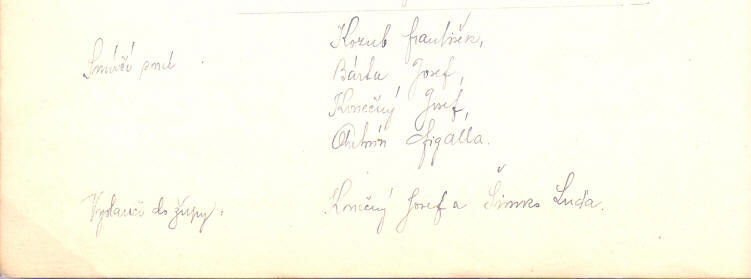 Smírčí soud Kozub František,
Bárta Josef,
Konečný Josef,
Figalla.
Vyslanci do župy: Konečný Josef a Šimko Luďa.